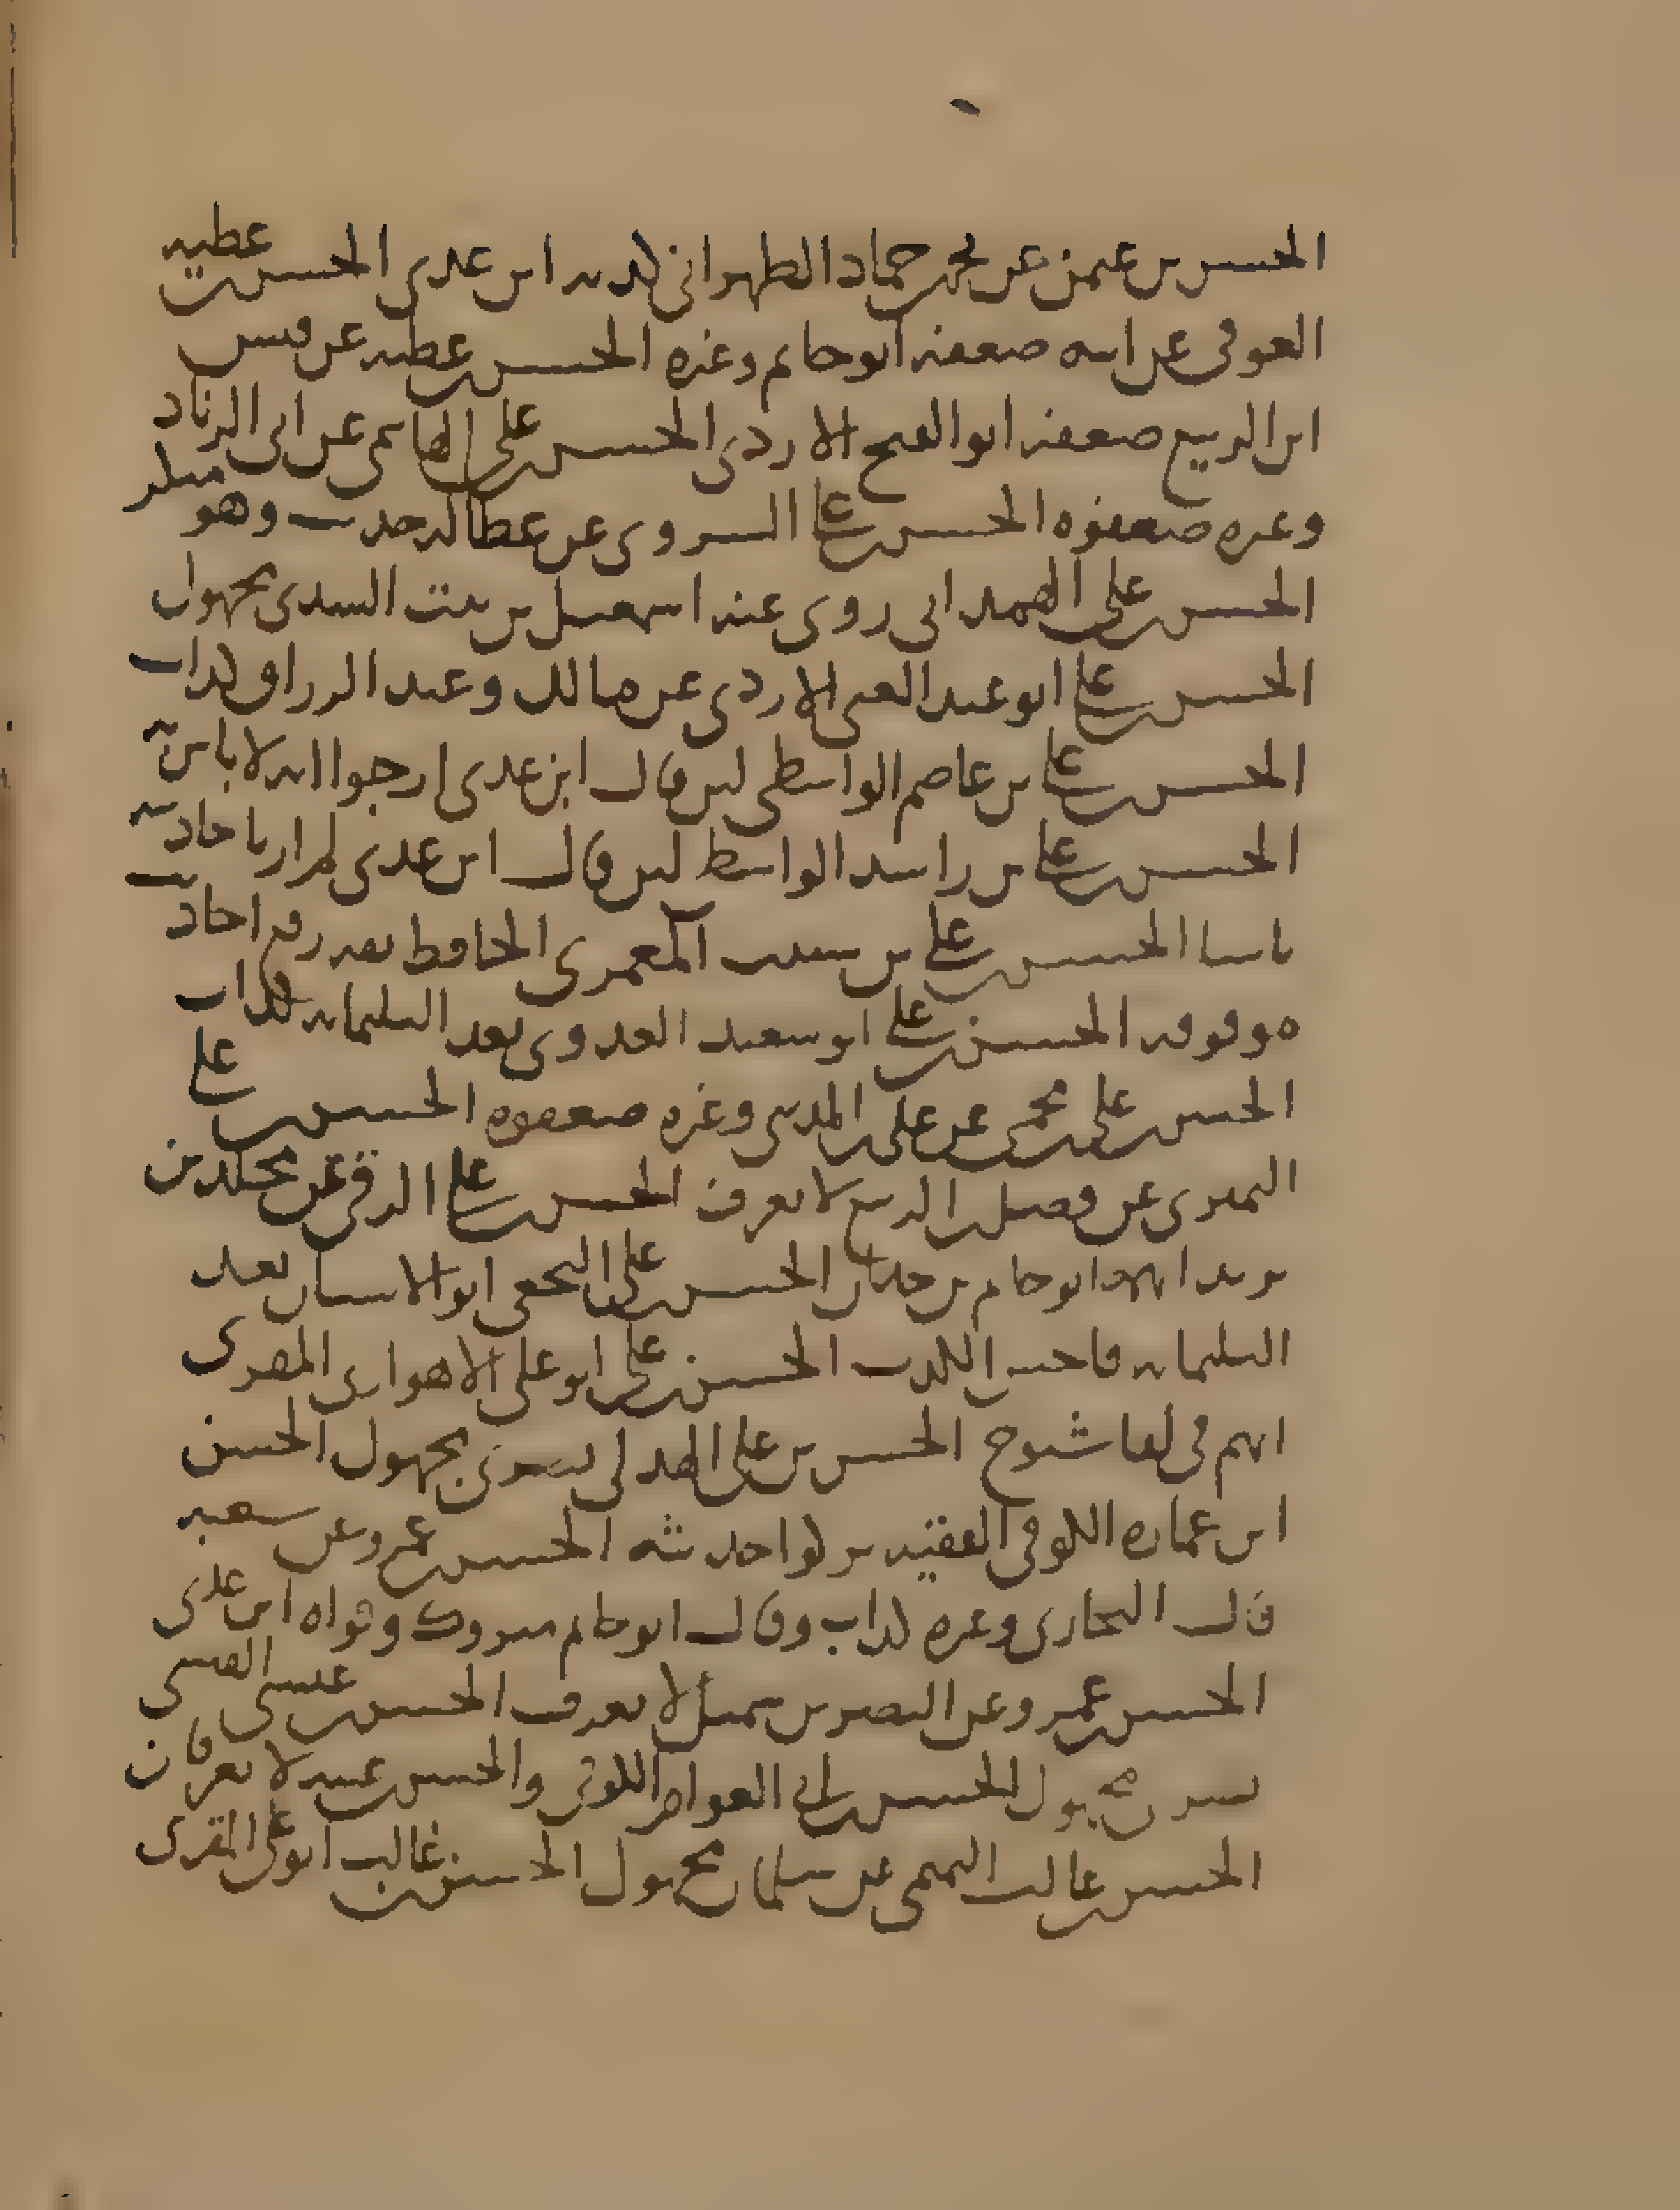 الحسن بن عثمن عن محمد بن حماد الطهراني كذبه ابن عدي الحسن بن عطيه
العوفي عن ابيه ضعفه ابو حاتم وغيره الحسن بن عطيه عن قيس
ابن الربيع ضعفه ابو الفتح الازدي الحسن بن علي الهاشمي عن ابي الزناد
وغيره ضعفوه الحسن بن علي الشروي عن عطا له حديث وهو منكر
الحسن بن علي الهمداني روى عنه اسمعيل بن بنت السدي مجهول
الحسن بن علي ابو عبد الغني الازدي عن مالك وعبد الرزاق كذاب
الحسن بن علي بن عاصم الواسطي لين قال ابن عدي ارجوا انه لا باس به
الحسن بن علي بن راشد الواسطي لين قال ابن عدي لم ار باحاديثه
باسا الحسن بن علي بن شبيب المعمري الحافظ ثقه رفع احاديث
موقوفه الحسن بن علي ابو سعيد العدوي بعد الثلثمايه كذاب
الحسن بن علي بن محمد عن علي بن المديني وغيره ضعفوه الحسن بن علي
النميري عن فضل بن الربيع لا يعرف الحسن بن علي الرقي عن مخلد بن
يزيد اتهمه ابو حاتم بن حبان الحسن بن علي النخعي ابو الاشنان بعد
الثلثمايه فاحش الكذب الحسن بن علي ابو علي الاهوازي المقرى
اتهم في لقا شيوخ الحسن بن علي الهذلي بصري مجهول الحسن
ابن عماره الكوفي الفقيه تركوا حديثه الحسن بن عمرو عن شعبه
قال البخاري وغيره كذاب وقال ابو حاتم متروك وقواه ابن عدي
الحسن بن عمرو عن النضر بن شميل لا يعرف الحسن بن عيسى القيسي
بصري مجهول الحسن بن ابي العوام الكوفي والحسن بن عيينه لا يعرفان
الحسن بن غالب التميمي عن سلمان مجهول الحسن بن غالب ابو علي المقرى